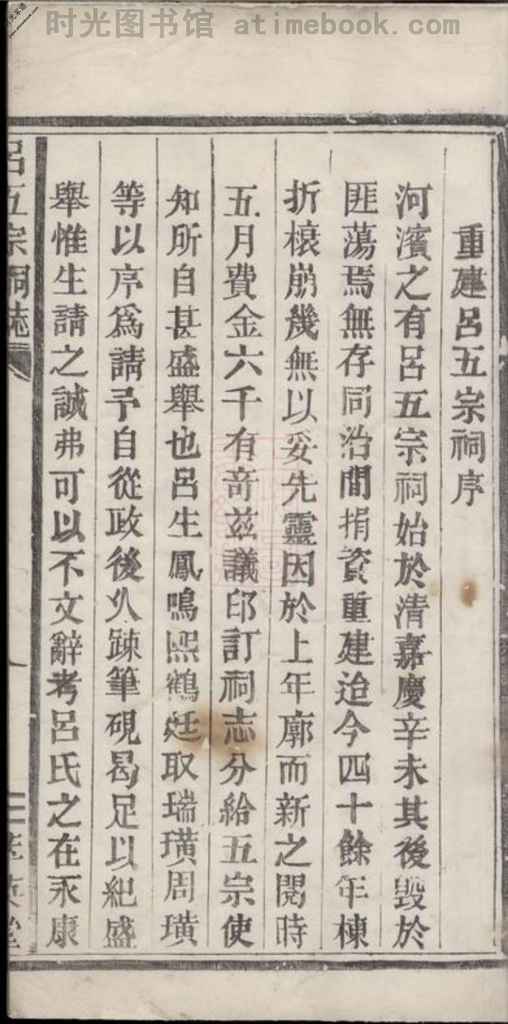 时光图书馆 atimebook.com
重建呂五宗祠序
河濱之有呂五宗祠始於清嘉慶辛未其後毀於
匪蕩焉無存同治間捐資重建迨今四十餘年棟
折榱崩幾無以妥先靈因於上年廓而新之閱時
五月費金六千有奇茲議印訂祠志分給五宗使
知所自甚盛舉也呂生鳳鳴熙鶴廷取瑞璜周璜
等以序爲請予自從政後久踈筆硯曷足以紀盛
舉惟生請之誠弗可以不文辭考呂氏之在永康
呂五宗祠誌